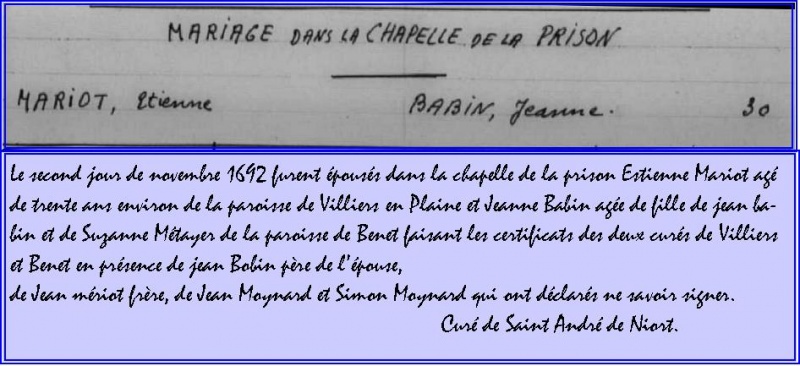 MARIAGE DANS LA CHAPELLE DE LA PRISON
MARIOT, Etienne BABIN, Jeanne. 30
Le second jour de novembre 1692 furent épousés dans la chapelle de la prison Estienne Mariot agé
de trente ans environ de la paroisse de Villiers en Plaine et Jeanne Babin agée de fille de jean ba-
bin et de Suzanne Métayer de la paroisse de Benet faisant les certificats des deux curés de Villiers
et Benet en présence de jean Bobin père de l'épouse,
de Jean mériot frère, de Jean Moynard et Simon Moynard qui ont déclarés ne savoir signer.
Curé de Saint André de Niort.